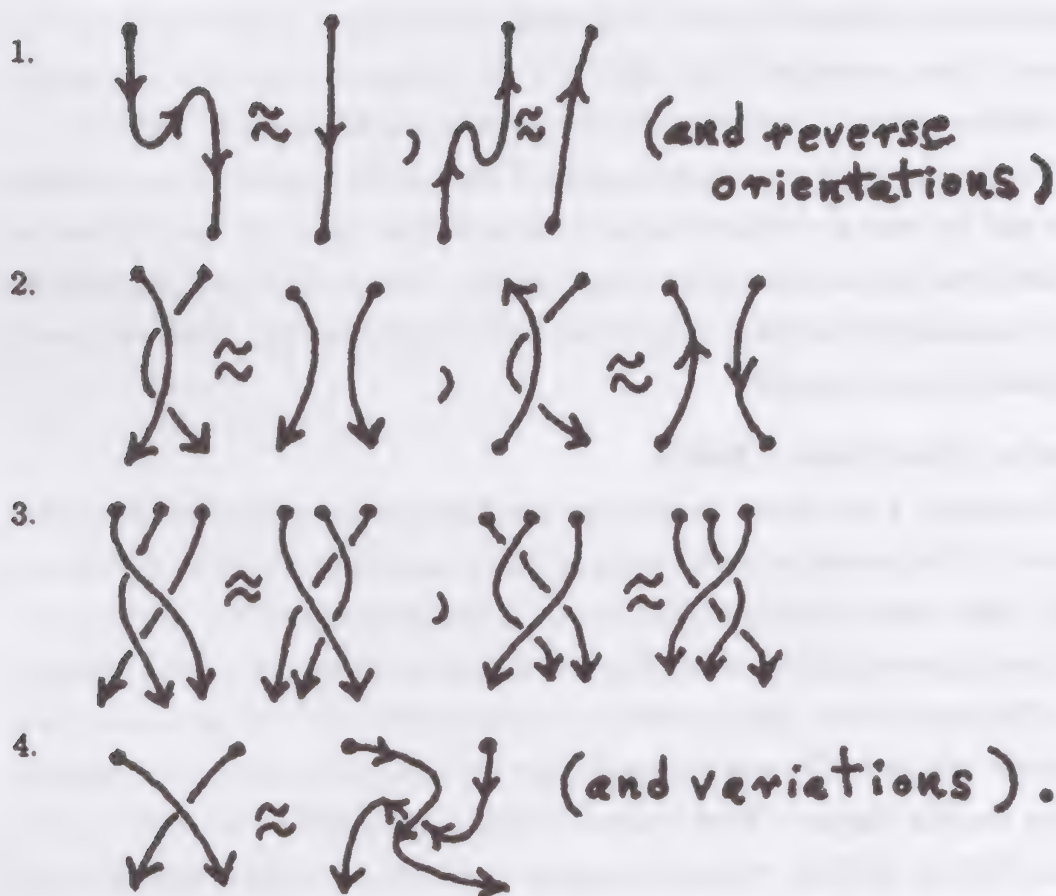 1. ≈ , ≈ (and reverse
orientations)
2. ≈ , ≈
3. ≈ , ≈
4. ≈ (and variations).